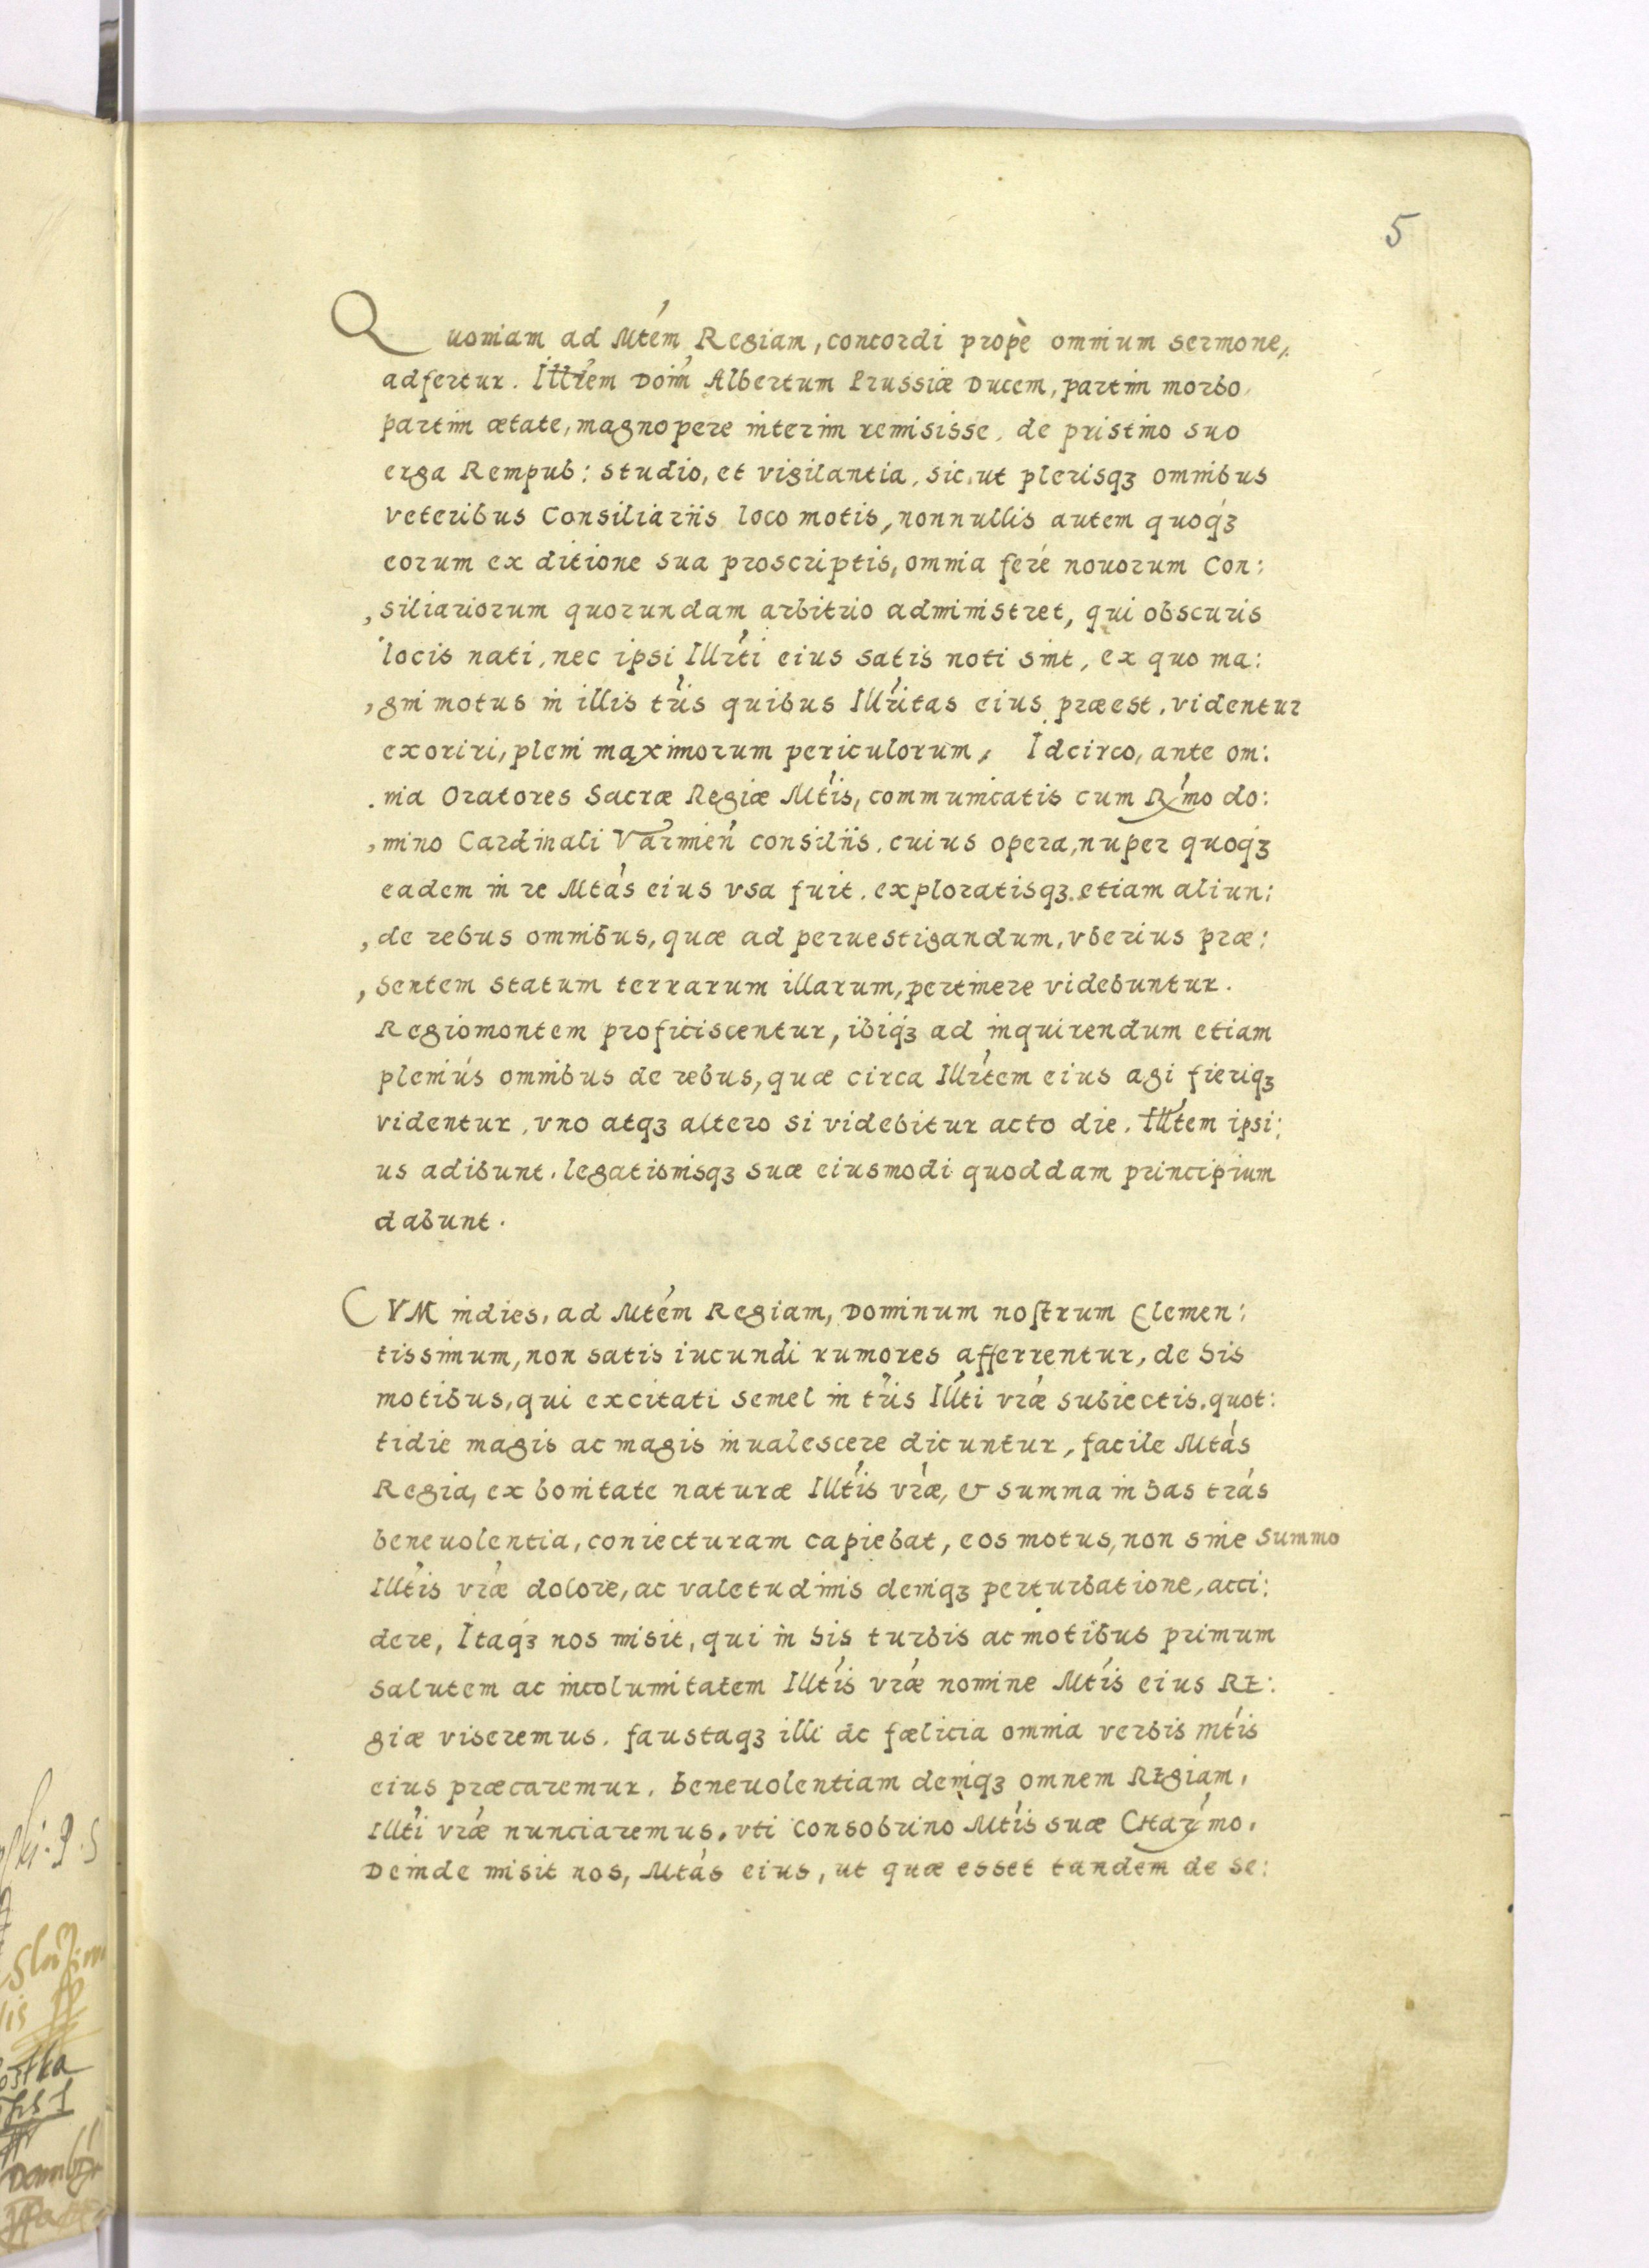 5
Quoniam ad Mtém Regiam, concordi propè omnium sermone,
adfertur. Illrem Doim Albertum Prussiæ Ducem, partim morbo
partim ætate, magnopere interim remisisse, de pristino suo
erga Rempub: studio, et vigilantia, sic, ut plerisqꝫ omnibus
veteribus Consiliariis loco motis, nonnullis autem quoqꝫ
eorum ex ditione sua proscriptis, omnia feré nouorum Con:
,siliariorum quorundam arbitrio administret, qui obscuris
locis nati, nec ipsi Illrti eius satis noti sint, ex quo ma:
,gni motus in illis tris quibus Illritas eius præest, videntur
exoriri, pleni maximorum periculorum, Idcirco, ante om:
,nia Oratores Sacræ Regiæ Mtis, communicatis cum Rmo do:
,mino Cardinali Varmien consiliis, cuius opera, nuper quoqꝫ
eadem in re Mtás eius vsa fuit, exploratisqꝫ etiam aliun:
,de rebus omnibus, quæ ad peruestigandum, vberius præ:
,sentem statum terrarum illarum, pertinere videbuntur.
Regiomontem proficiscentur, ibiqꝫ ad inquirendum etiam
pleniús omnibus de rebus, quæ circa Illrtem eius agi fieriqꝫ
videntur, vno atqꝫ altero si videbitur acto die. Illtem ipsi:
us adibunt. legationisqꝫ suæ eiusmodi quoddam principium
dabunt.
CVM indies, ad Mtém Regiam, Dominum noſtrum Clemen:
tissimum, non satis iucundi rumores afferrentur, de his
motibus, qui excitati semel in tris Illti vræ subiectis, quot:
tidie magis ac magis inualescere dicuntur, facile Mtás
Regia, ex bonitate naturæ Illtis vræ, & summa in has trás
beneuolentia, coniecturam capiebat, eos motus, non sine summo
Illtis vræ dolore, ac valetudinis deniqꝫ perturbatione, acci:
dere, Itaqꝫ nos misit, qui in his turbis ac motibus primum
salutem ac incolumitatem Illtis vræ nomine Mtis eius RE:
giæ viseremus, faustaqꝫ illi ac fælicia omnia verbis Mtis
eius præcaremur, beneuolentiam deniqꝫ omnem REgiam,
Illti vræ nunciaremus, vti Consobrino Mtis suæ CHarmo.
Deinde misit nos, Mtás eius, ut quæ esset tandem de se: